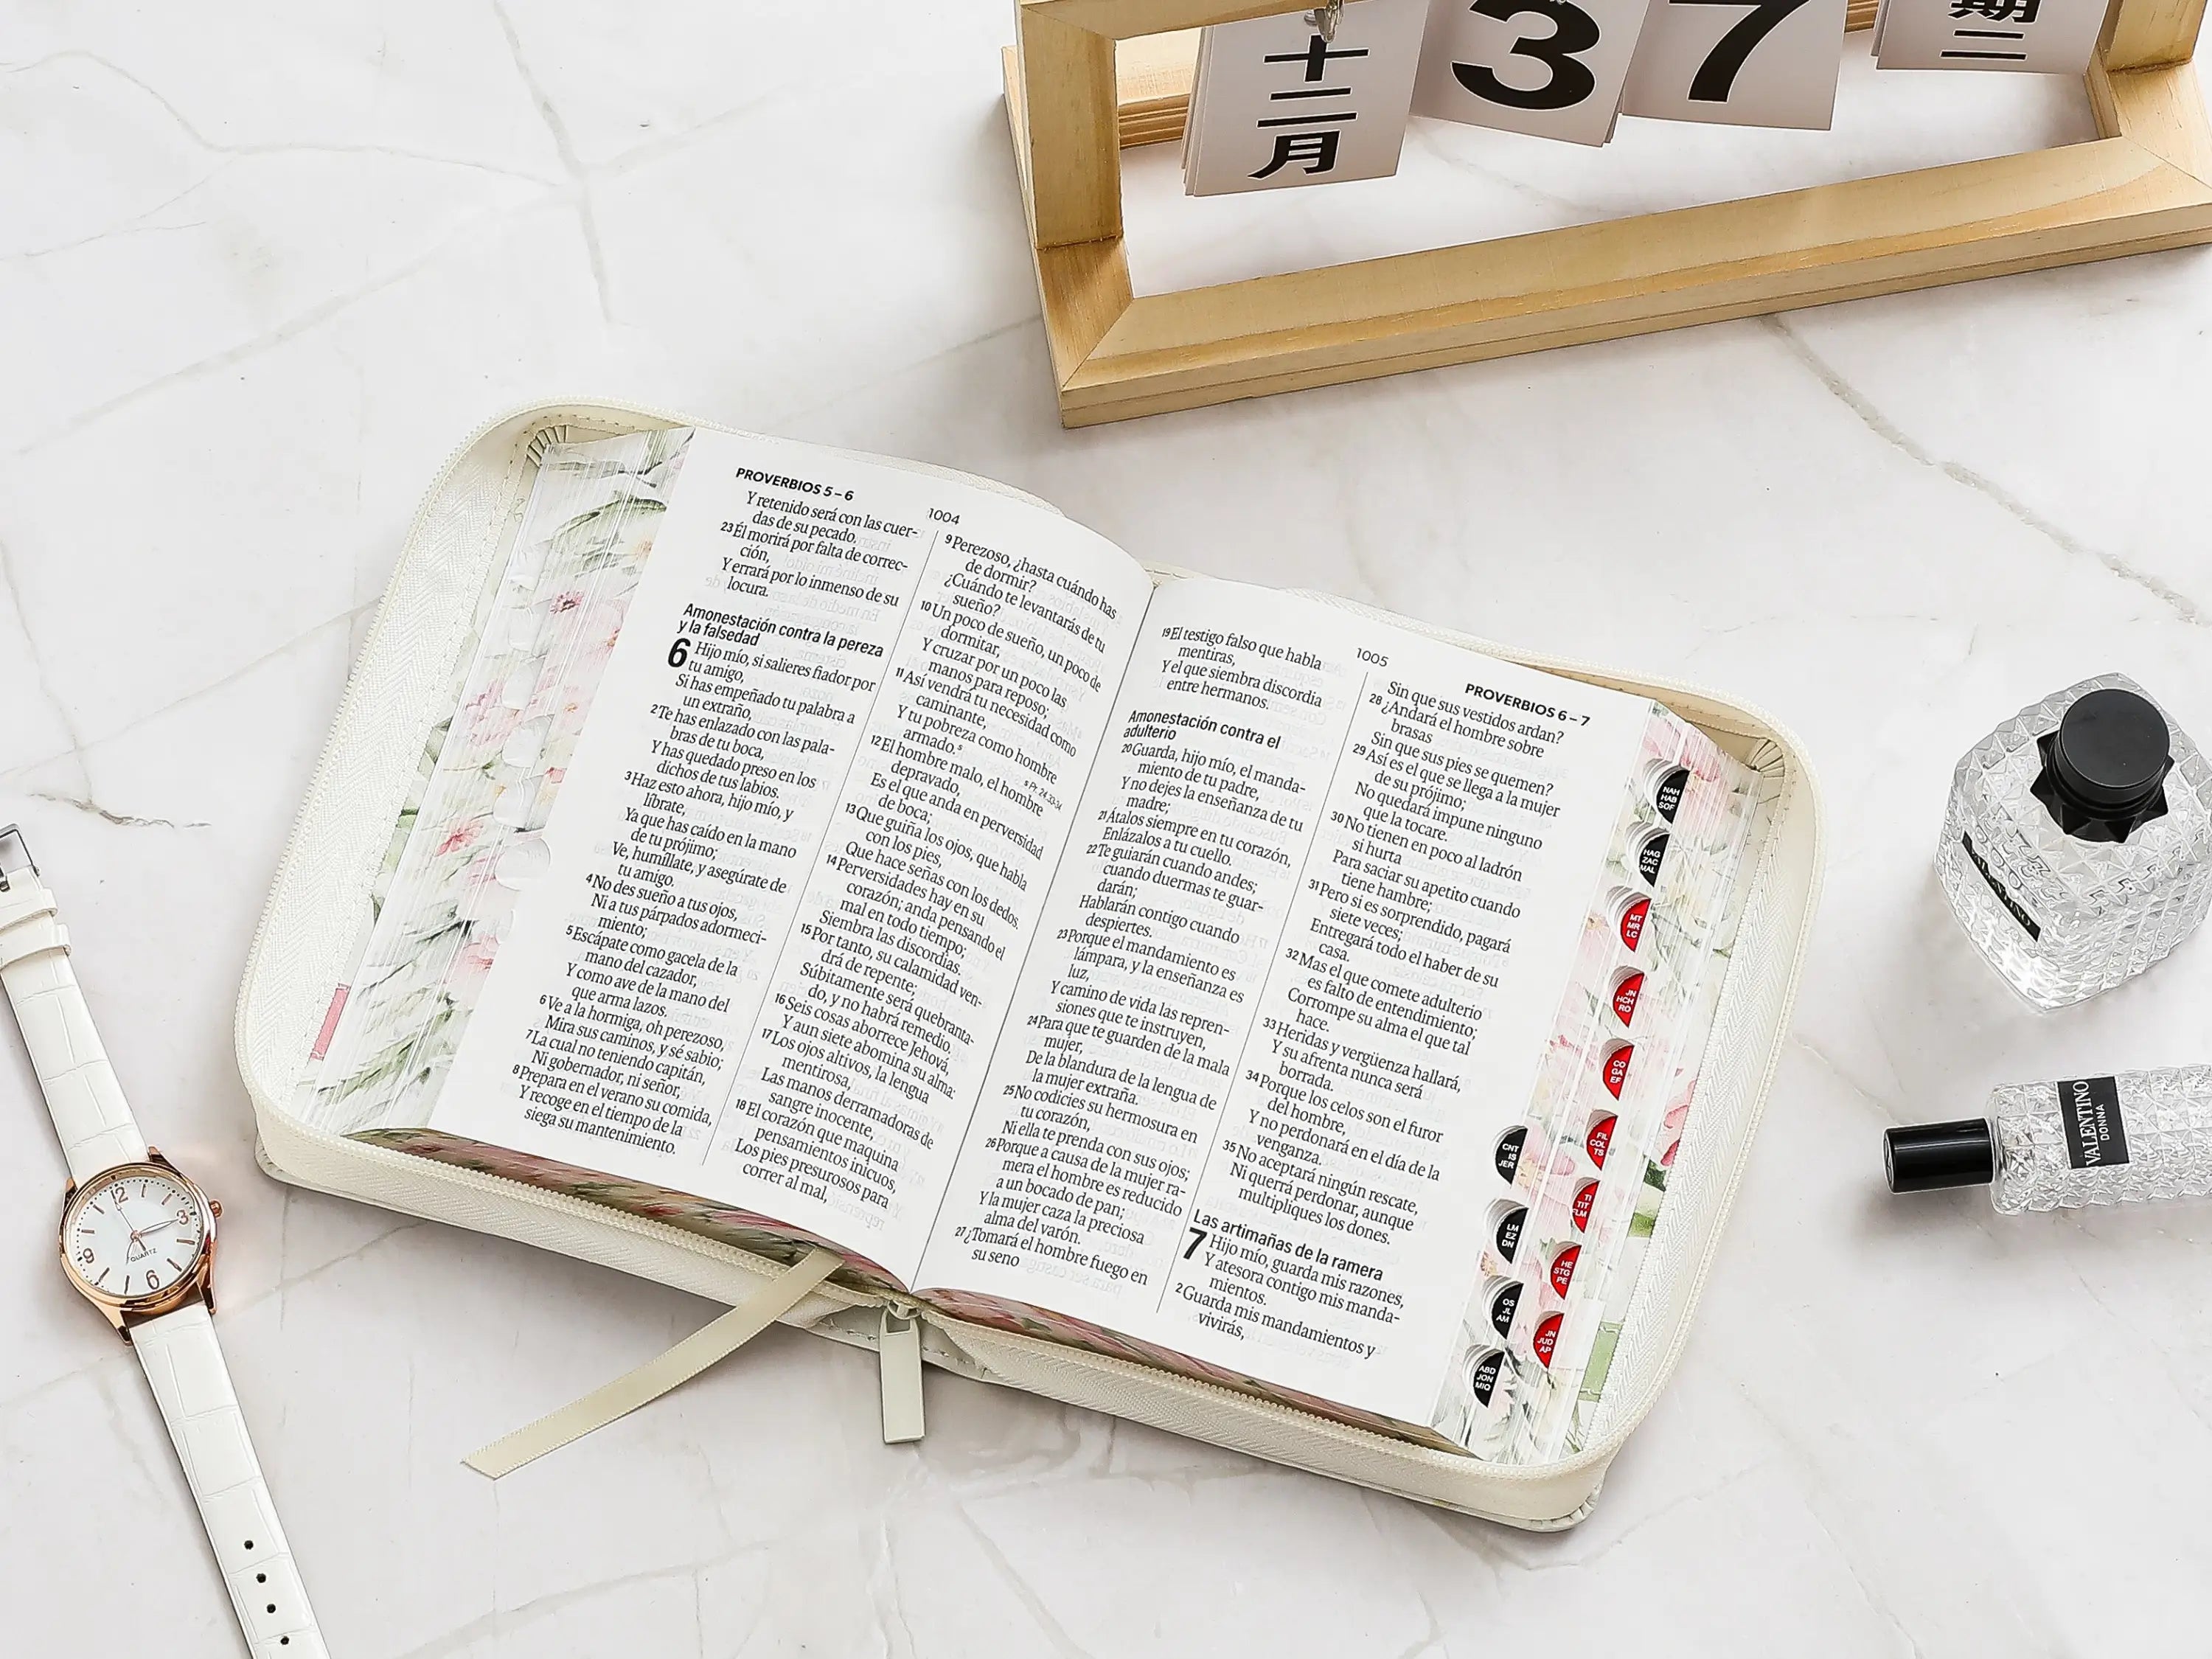 十二月
3
7
期二
PROVERBIOS 5 – 6
1004
Y retenido será con las cuer-
das de su pecado.
23 Él morirá por falta de correc-
ción,
Y errará por lo inmenso de su
locura.
Amonestación contra la pereza
y la falsedad
6 Hijo mío, si salieres fiador por
tu amigo,
Si has empeñado tu palabra a
un extraño,
2 Te has enlazado con las pala-
bras de tu boca,
Y has quedado preso en los
dichos de tus labios.
3 Haz esto ahora, hijo mío, y
líbrate,
Ya que has caído en la mano
de tu prójimo;
Ve, humíllate, y asegúrate de
tu amigo.
4 No des sueño a tus ojos,
Ni a tus párpados adormeci-
miento;
5 Escápate como gacela de la
mano del cazador,
Y como ave de la mano del
que arma lazos.
6 Ve a la hormiga, oh perezoso,
Mira sus caminos, y sé sabio;
7 La cual no teniendo capitán,
Ni gobernador, ni señor,
8 Prepara en el verano su comida,
Y recoge en el tiempo de la
siega su mantenimiento.
9 Perezoso, ¿hasta cuándo has
de dormir?
¿Cuándo te levantarás de tu
sueño?
10 Un poco de sueño, un poco de
dormitar,
Y cruzar por un poco las
manos para reposo;
11 Así vendrá tu necesidad como
caminante,
Y tu pobreza como hombre
armado.
Pr. 24.33-34
12 El hombre malo, el hombre
depravado,
Es el que anda en perversidad
de boca;
13 Que guiña los ojos, que habla
con los pies,
Que hace señas con los dedos.
14 Perversidades hay en su
corazón; anda pensando el
mal en todo tiempo;
Siembra las discordias.
15 Por tanto, su calamidad ven-
drá de repente;
Súbitamente será quebranta-
do, y no habrá remedio.
16 Seis cosas aborrece Jehová,
Y aun siete abomina su alma:
17 Los ojos altivos, la lengua
mentirosa,
Las manos derramadoras de
sangre inocente,
18 El corazón que maquina
pensamientos inicuos,
Los pies presurosos para
correr al mal,
1005
PROVERBIOS 6 – 7
19 El testigo falso que habla
mentiras,
Y el que siembra discordia
entre hermanos.
Amonestación contra el
adulterio
20 Guarda, hijo mío, el manda-
miento de tu padre,
Y no dejes la enseñanza de tu
madre;
21 Átalos siempre en tu corazón,
Enlázalos a tu cuello.
22 Te guiarán cuando andes;
cuando duermas te guar-
darán;
Hablarán contigo cuando
despiertes.
23 Porque el mandamiento es
lámpara, y la enseñanza es
luz,
Y camino de vida las repren-
siones que te instruyen,
24 Para que te guarden de la mala
mujer,
De la blandura de la lengua de
la mujer extraña.
25 No codicies su hermosura en
tu corazón,
Ni ella te prenda con sus ojos;
26 Porque a causa de la mujer ra-
mera el hombre es reducido
a un bocado de pan;
Y la mujer caza la preciosa
alma del varón.
27 ¿Tomará el hombre fuego en
su seno
Sin que sus vestidos ardan?
28 ¿Andará el hombre sobre
brasas
Sin que sus pies se quemen?
29 Así es el que se llega a la mujer
de su prójimo;
No quedará impune ninguno
que la tocare.
30 No tienen en poco al ladrón
si hurta
Para saciar su apetito cuando
tiene hambre;
31 Pero si es sorprendido, pagará
siete veces;
Entregará todo el haber de su
casa.
32 Mas el que comete adulterio
es falto de entendimiento;
Corrompe su alma el que tal
hace.
33 Heridas y vergüenza hallará,
Y su afrenta nunca será
borrada.
34 Porque los celos son el furor
del hombre,
Y no perdonará en el día de la
venganza.
35 No aceptará ningún rescate,
Ni querrá perdonar, aunque
multipliques los dones.
Las artimañas de la ramera
7 Hijo mío, guarda mis razones,
Y atesora contigo mis manda-
mientos.
2 Guarda mis mandamientos y
vivirás,
NAH
HAB
SOF
HAG
ZAC
MAL
MT
MR
LC
JN
HCH
RO
CO
GA
EF
FIL
COL
TS
TI
TIT
FLM
HE
STG
PE
JN
JUD
AP
CNT
IS
JER
LM
EZ
DN
OS
JL
AM
ABD
JON
MIQ
12
3
6
9
QUARTZ
VALENTINO
VALENTINO
DONNA